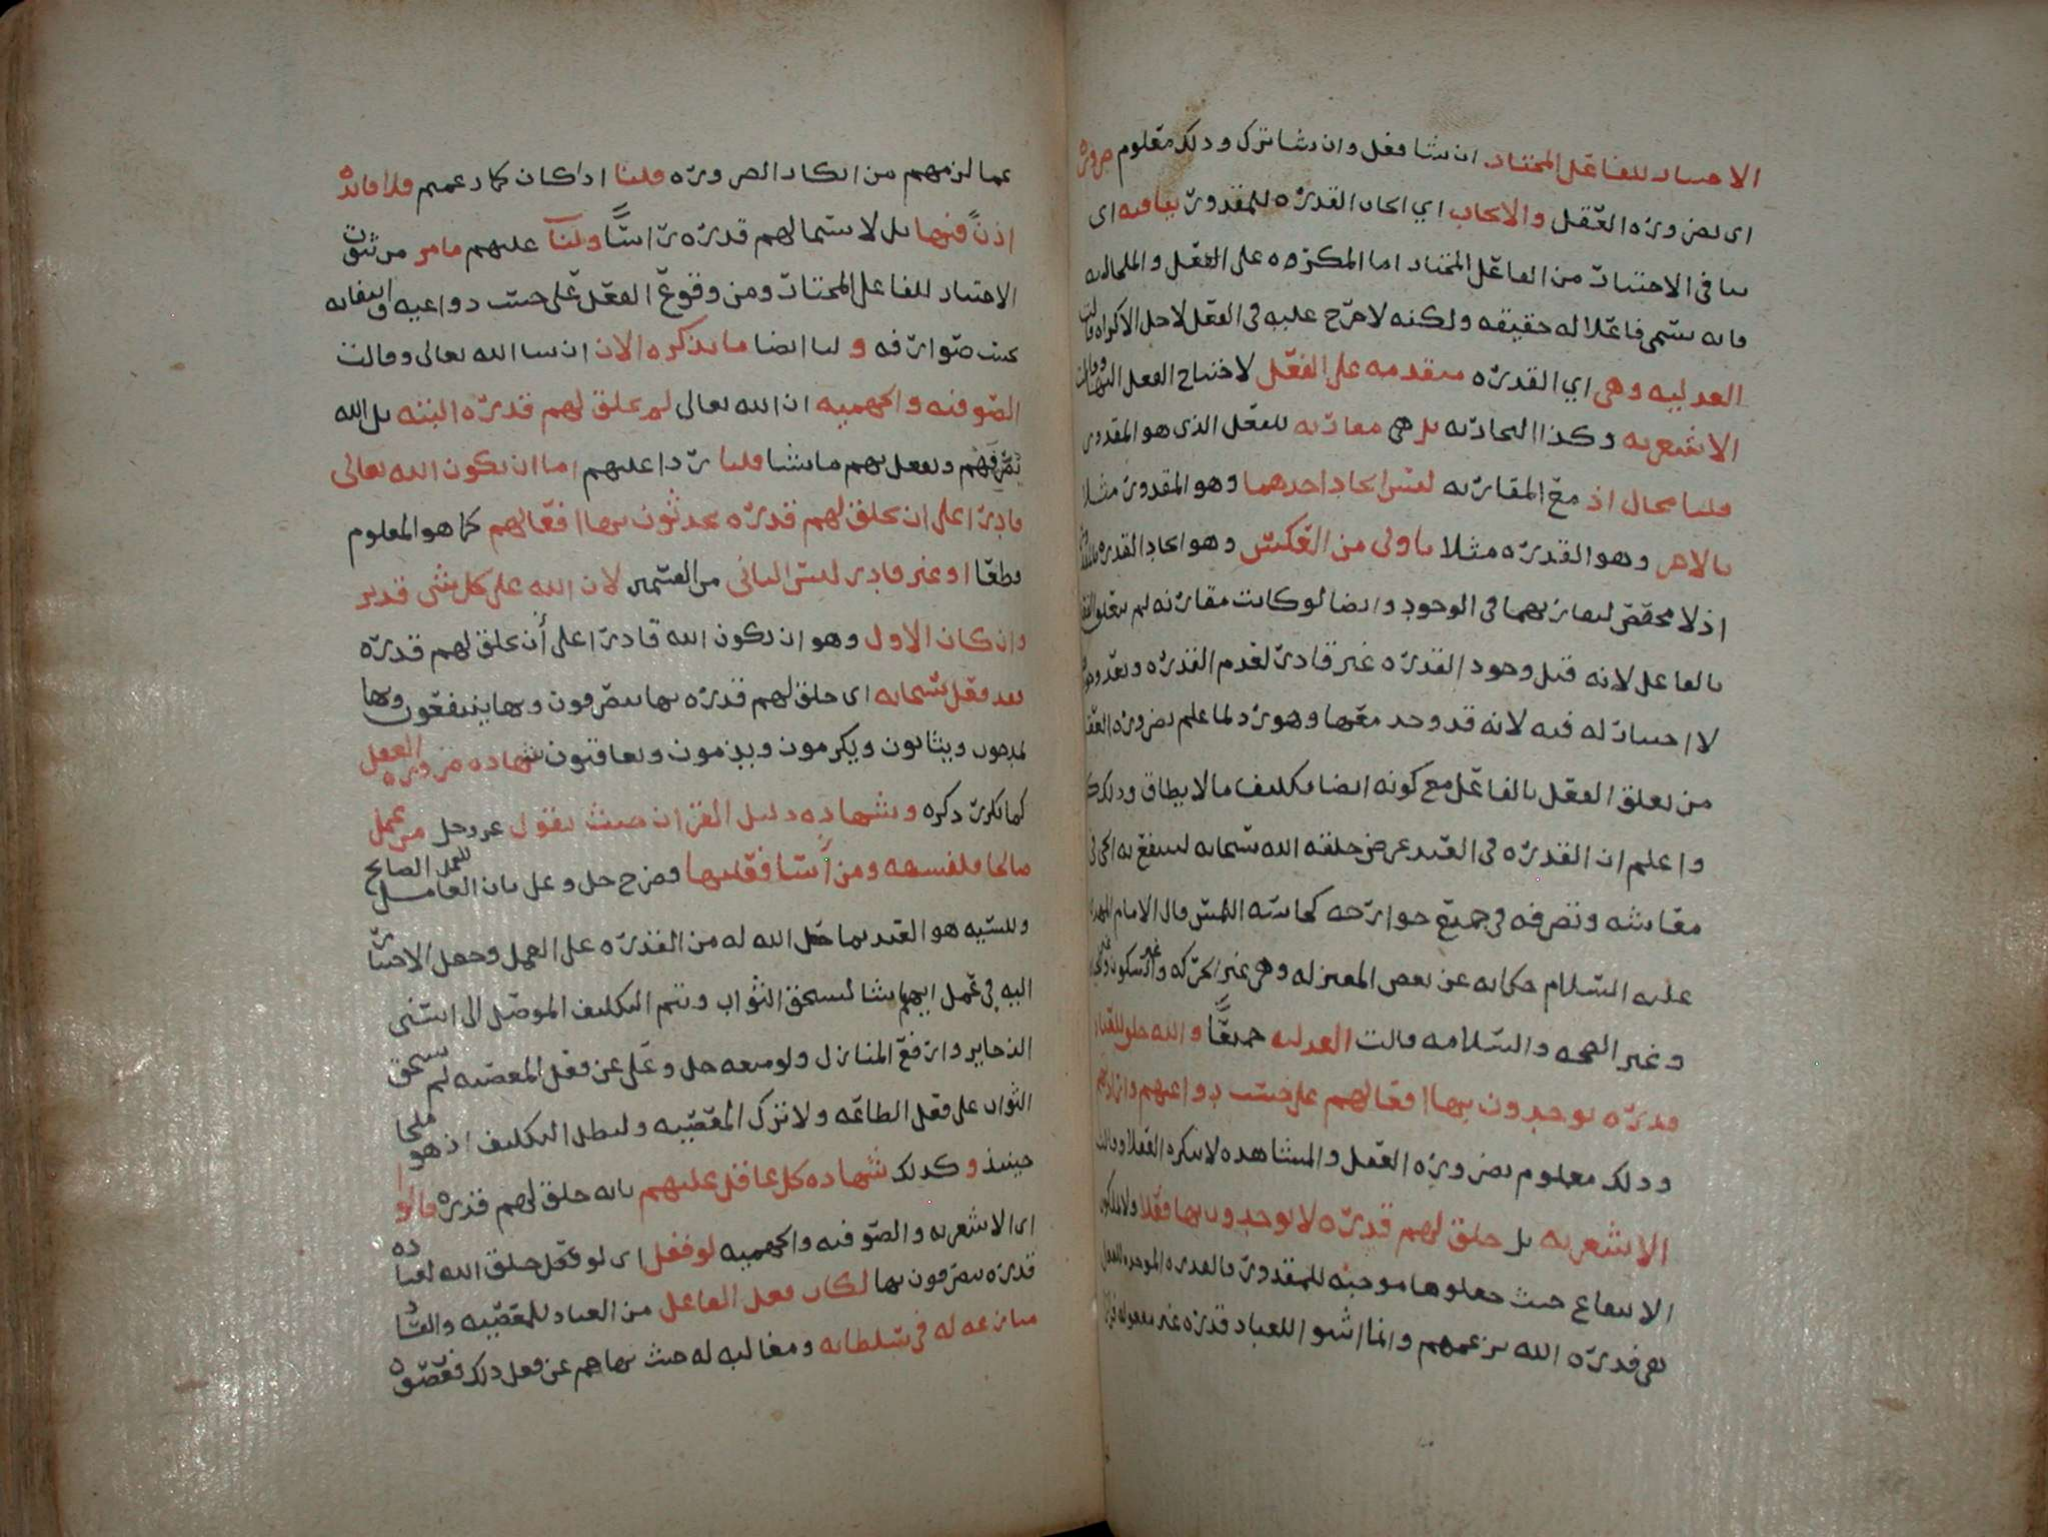 الاختيار للفاعل المختار ان شا فعل وان شا ترك وذلك معلوم ضرورة
اى بضرورة العقل والايجاب اي ايجاب القدرة للمقدور ينافيه اى
ينافي الاختيار من الفاعل المختار اما المكره على الفعل والملجا اليه
فانه يسمى فاعلا له حقيقه ولكنه لا حرج عليه في الفعل لاجل الاكراه قالت
العدليه وهي اي القدرة متقدمه على الفعل لاحتياج الفعل اليها وقالت
الاشعريه وكذا النجاريه بل هي مقارنه للفعل الذى هو المقدور
قلنا محال اذ مع المقارنه ليس ايجاد احدهما وهو المقدور مثلا
بالاخر وهو القدرة مثلا باولى من العكس وهو ايجاد القدرة
اذ لا مخصص لتقارنهما في الوجود وايضا لو كانت مقارنه لم يتعلق الفعل
بالفاعل لانه قبل وجود القدرة غير قادر لعدم القدرة وبعد وجود
لا اختيار له فيه لانه قد وجد معها وهو رد لما علم بضرورة العقل
من تعلق الفعل بالفاعل مع كونه ايضا تكليف ما لا يطاق وذلك
واعلم ان القدرة في العبد عرض خلقه الله سبحانه لينتفع به الحي في
معاشه وتصرفه في جميع جوارحه كحاسه اللمس قال الامام المهدي
عليه السلام حكايه عن بعض المعتزله وهي غير الحركه وغير السكون
وغير الصحه والسلامه قالت العدليه جميعا والله خلق للعباد
قدرة يوجدون بها افعالهم على حسب دواعيهم وارادتهم
وذلك معلوم بضرورة العقل والمشاهده لا ينكره العقلا وقالت
الاشعريه بل خلق لهم قدرة لا يوجدون بها فعلا ولا يملكون
الانتفاع حيث جعلوها موجبه للمقدور فالقدره الموجده للفعل
هي قدرة الله بزعمهم وانما اثبتوا للعباد قدرة غير معقوله فرارا
عما لزمهم من انكار الضرورة قلنا اذا كان كما زعمتم فلا فائدة
اذن فيها بل لا يسمى لهم قدرة راسا ولنا عليهم ما مر من ثبوت
الاختيار للفاعل المختار ومن وقوع الفعل على حسب دواعيه وانتفائه
بحسب صوارفه و لنا ايضا ما نذكره الان ان شا الله تعالى وقالت
الصوفيه والجهميه ان الله تعالى لم يخلق لهم قدرة البته بل الله
يصرفهم ويفعل بهم ما يشا قلنا ردا عليهم اما ان يكون الله تعالى
قادرا على ان يخلق لهم قدرة يحدثون بها افعالهم كما هو المعلوم
قطعا او غير قادر ليس الثاني من القسمين لان الله على كل شي قدير
وان كان الاول وهو ان يكون الله قادرا على أن يخلق لهم قدرة
فقد فعل سبحانه اى خلق لهم قدرة بها يتصرفون وبها ينتفعون وبها
يمدحون ويثابون ويكرمون ويذمون ويعاقبون شهادة ضرورة العقل
كما تكرر ذكره وشهادة دليل القران حيث يقول عز وجل من عمل
صالحا فلنفسه ومن أسا فعليها فصرح جل وعلى بان العامل للعمل الصالح
وللسيه هو العبد بما جعل الله له من القدرة على العمل وجعل الاختيار
اليه في عمل ايهما شا ليستحق الثواب ويتم التكليف الموصل الى اسنى
الذخاير وارفع المنازل ولو منعه جل وعلى عن فعل المعصيه لم يستحق
الثواب على فعل الطاعه ولا ترك المعصيه ولبطل التكليف اذ هو ملجا
حينيذ وكذلك شهادة كل عاقل عليهم بانه خلق لهم قدرة قالوا
اى الاشعريه والصوفيه والجهميه لو فعل اى لو فعل خلق الله لعباده
قدرة يتصرفون بها لكان فعل الفاعل من العباد للمعصيه والفساد
منازعه له في سلطانه ومغالبه له حيث نهاهم عن فعل ذلك فعصوه